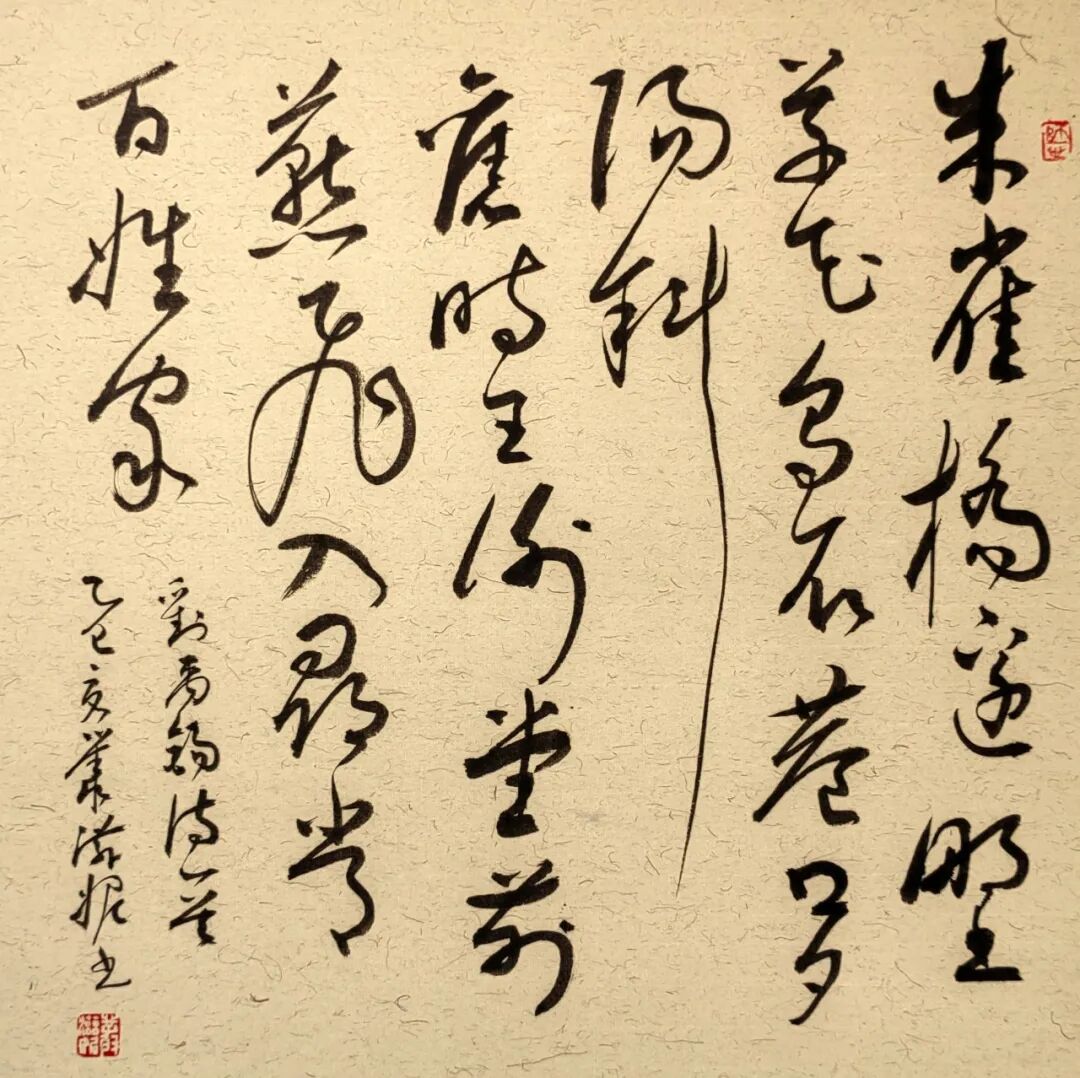 朱雀橋邊野
草花烏衣巷口夕
陽斜
舊時王謝堂前
燕飛入尋常
百姓家
劉禹錫詩一首
乙巳夏 書